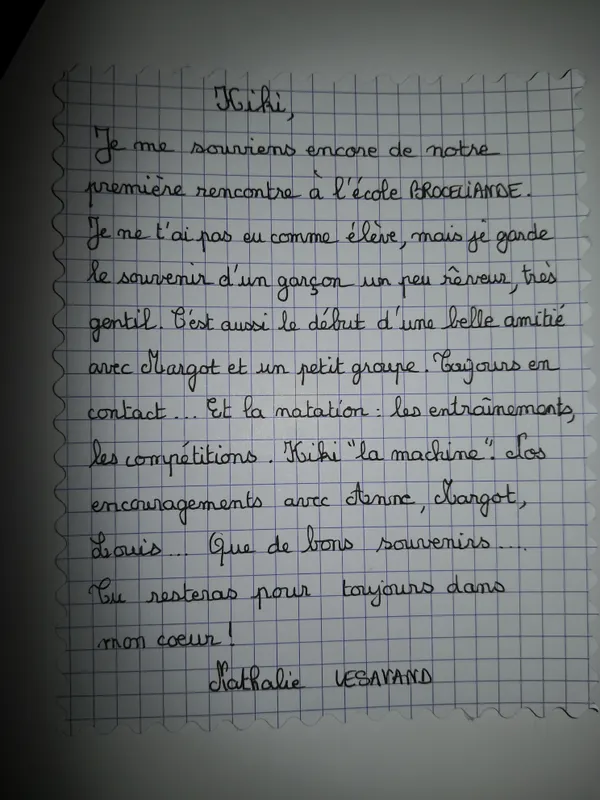 Kiki,
Je me souviens encore de notre
première rencontre à l'école BROCELIANDE.
Je ne t'ai pas eu comme élève, mais je garde
le souvenir d'un garçon un peu rêveur, très
gentil. C'est aussi le début d'une belle amitié
avec Margot et un petit groupe. Toujours en
contact... Et la natation : les entraînements,
les compétitions. Kiki "la machine". Nos
encouragements avec Anne, Margot,
Louis... Que de bons souvenirs....
Tu resteras pour toujours dans
mon coeur !
Nathalie LESAVAND